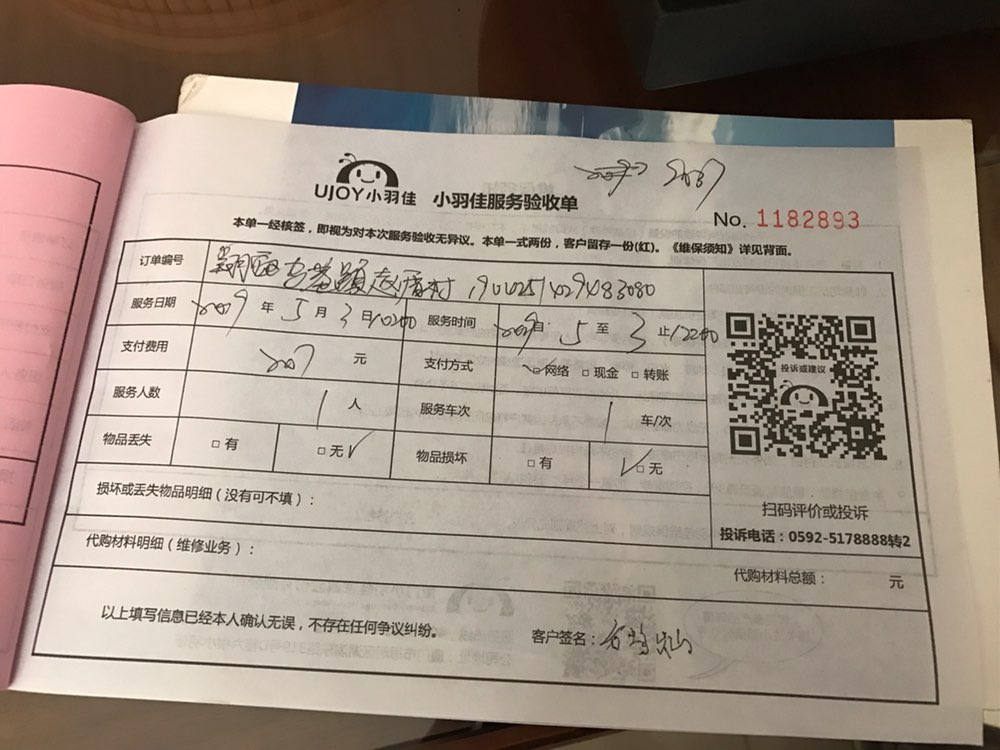 UJOY小羽佳 小羽佳服务验收单
No. 1182893
本单一经核签，即视为对本次服务验收无异议。本单一式两份，客户留存一份(红)。《维保须知》详见背面。
订单编号
服务日期 年 5 月 3 日 服务时间 5 至 3 止
支付费用 元 支付方式 □网络 □现金 □转账
服务人数 1 人 服务车次 1 车/次
物品丢失 □有 □无✓ 物品损坏 □有 ✓□无
投诉或建议
损坏或丢失物品明细（没有可不填）：
扫码评价或投诉
投诉电话：0592-5178888转2
代购材料明细（维修业务）：
代购材料总额： 元
以上填写信息已经本人确认无误，不存在任何争议纠纷。 客户签名：